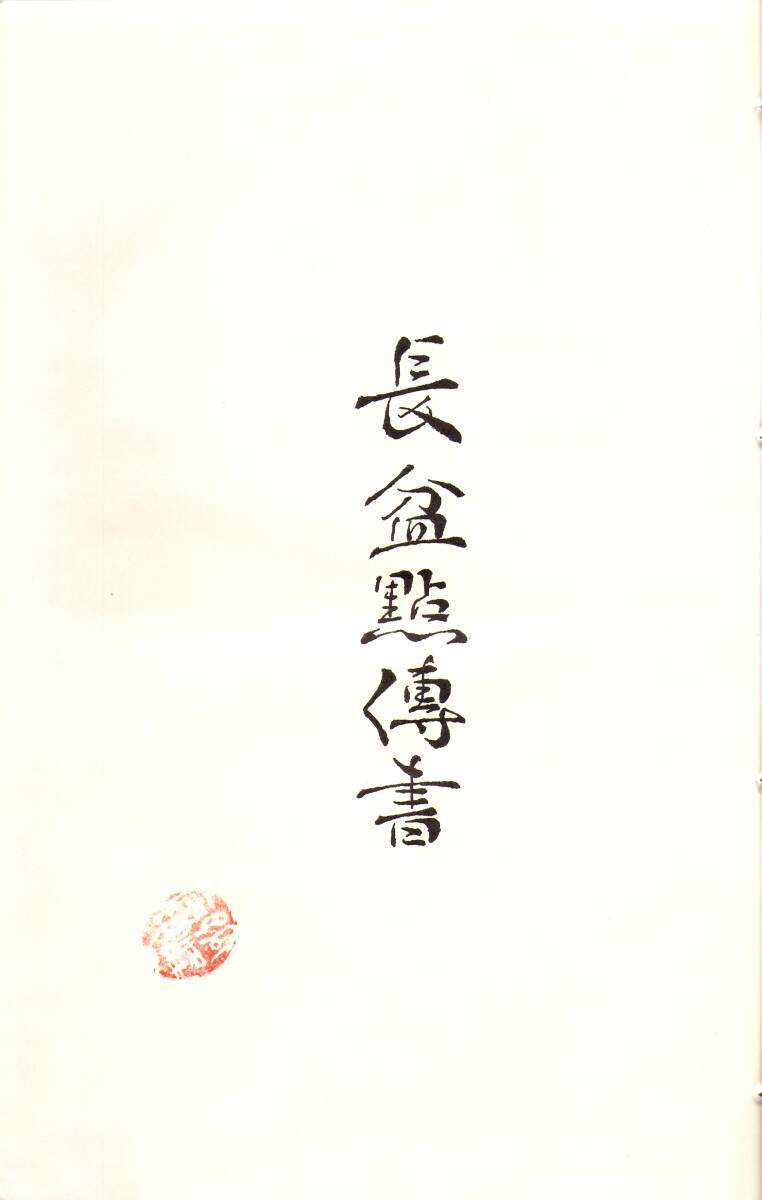 長盆點傳書